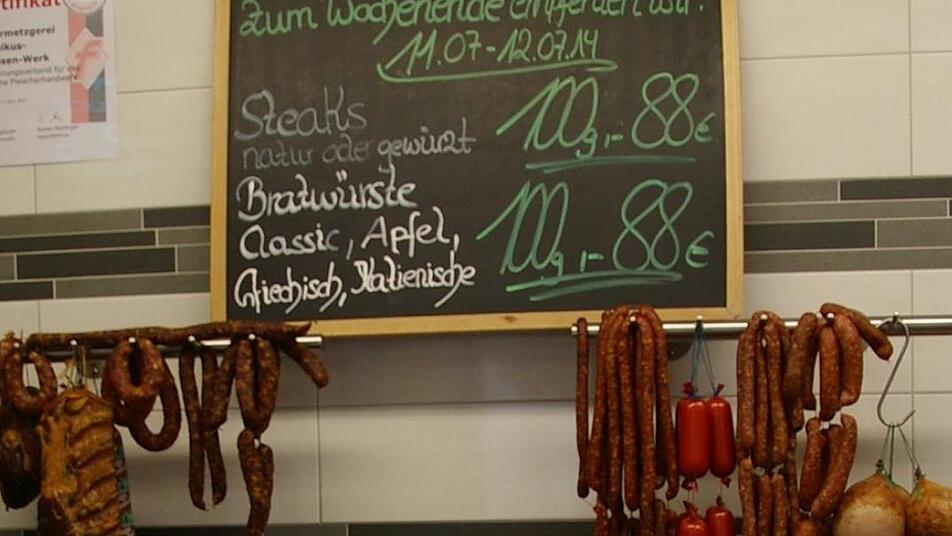 rtifikat
rmetzgerei
ikus-
sen-Werk
Zum Wochenende empfehlen wir:
11.07-12.07.14
Steaks
natur oder gewürzt
100g,-88€
Bratwürste
Classic, Apfel,
Griechisch, Italienische
100g,-88€